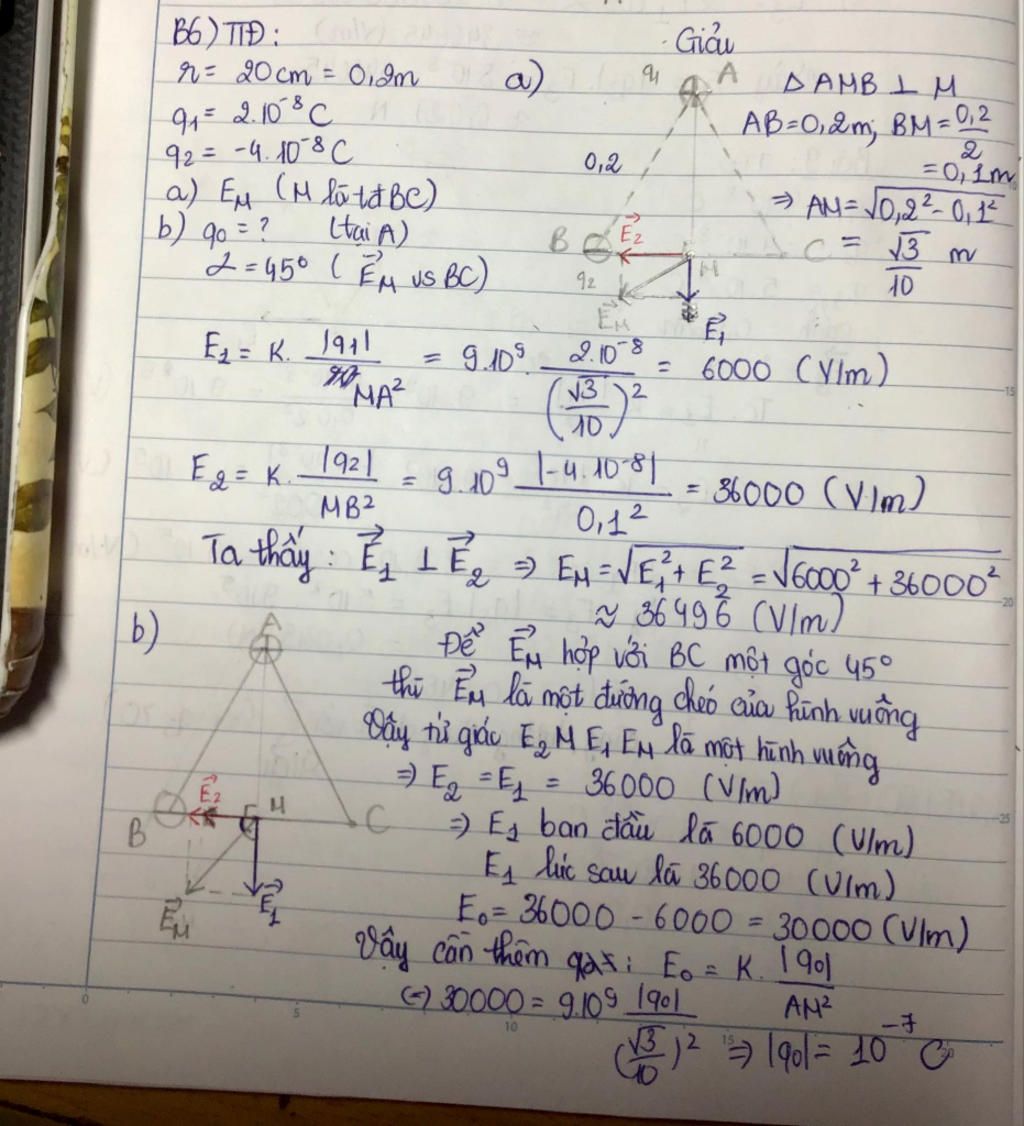 B6) TTĐ:
r = 20cm = 0,2m
q₁ = 2.10⁻⁸ C
q₂ = -4.10⁻⁸ C
a) E_M (M là tđ BC)
b) q₀ = ? (tại A)
α = 45° (E⃗_M vs BC)
Giải
a)
q₁ A
0,2
B E⃗₂ M C
q₂ E⃗_M E⃗₁
Δ AMB ⊥ M
AB = 0,2m; BM = 0,2/2
= 0,1m
⇒ AM = √(0,2² - 0,1²)
= √3/10 m
E₁ = K. |q₁|/MA² = 9.10⁹. 2.10⁻⁸/(√3/10)² = 6000 (V/m)
E₂ = K. |q₂|/MB² = 9.10⁹ |-4.10⁻⁸|/0,1² = 36000 (V/m)
Ta thấy: E⃗₁ ⊥ E⃗₂ ⇒ E_M = √(E₁² + E₂²) = √(6000² + 36000²)
≈ 36496 (V/m)
b)
A
B E⃗₂ M C
E⃗_M E⃗₁
Để E⃗_M hợp với BC một góc 45°
thì E⃗_M là một đường chéo của hình vuông
Vậy tứ giác E₂ M E₁ E_M là một hình vuông
⇒ E₂ = E₁ = 36000 (V/m)
⇒ E₁ ban đầu là 6000 (V/m)
E₁ lúc sau là 36000 (V/m)
E₀ = 36000 - 6000 = 30000 (V/m)
Vậy cần thêm : E₀ = K. |q₀|/AM²
(=) 30000 = 9.10⁹ |q₀|/(√3/10)² ⇒ |q₀| = 10⁻⁷ C
0 5 10 15
15
20
25